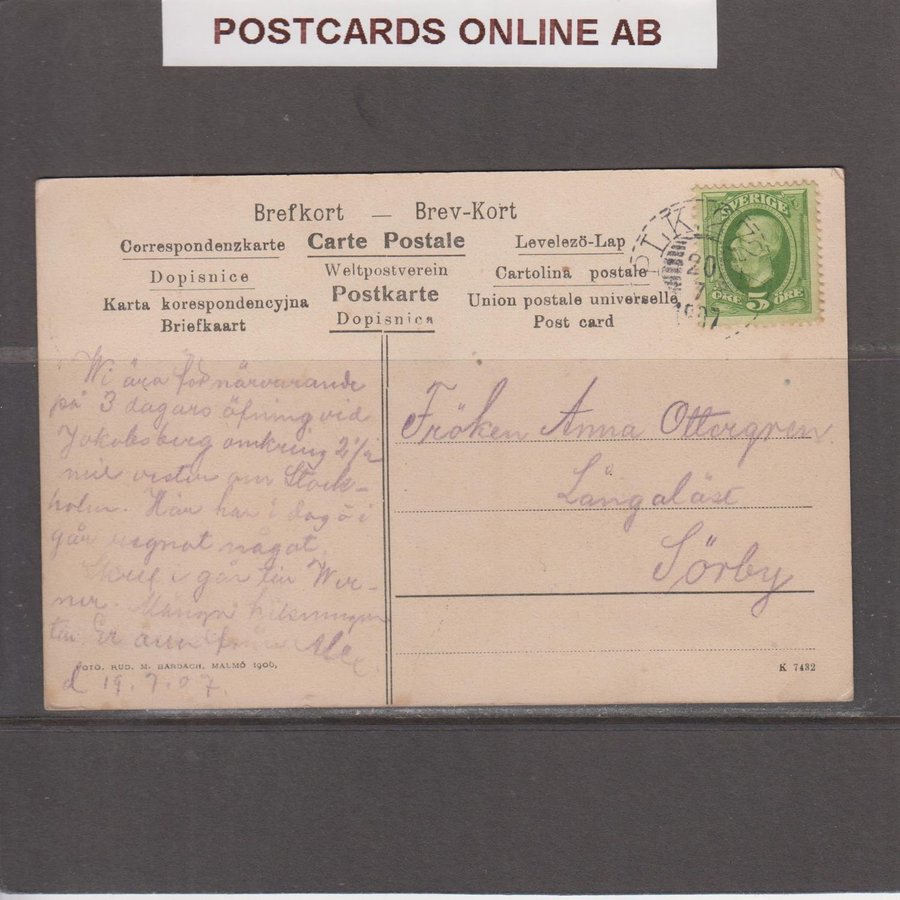 POSTCARDS ONLINE AB
Brefkort — Brev-Kort
Correspondenzkarte Carte Postale Levelezö-Lap
Dopisnice Weltpostverein Cartolina postale
Karta korespondencyjna Postkarte Union postale universelle
Briefkaart Dopisnica Post card
SVERIGE
ÖRE 5 ÖRE
PLK
20
7
1907
Wi ära för närvarande
på 3 dagars öfning vid
Jakobsberg omkring 2½
mil vester om Stock-
holm. Här har i dag o i
går regnat något.
Skref i går till Wer-
ner. Många helsningar
till Er alla från Alex.
d 19.7.07.
Fröken Anna Ottergren
Långaläst
Sörby
FOTO. RUD. M. BARDACH, MALMÖ 1906,
K 7432